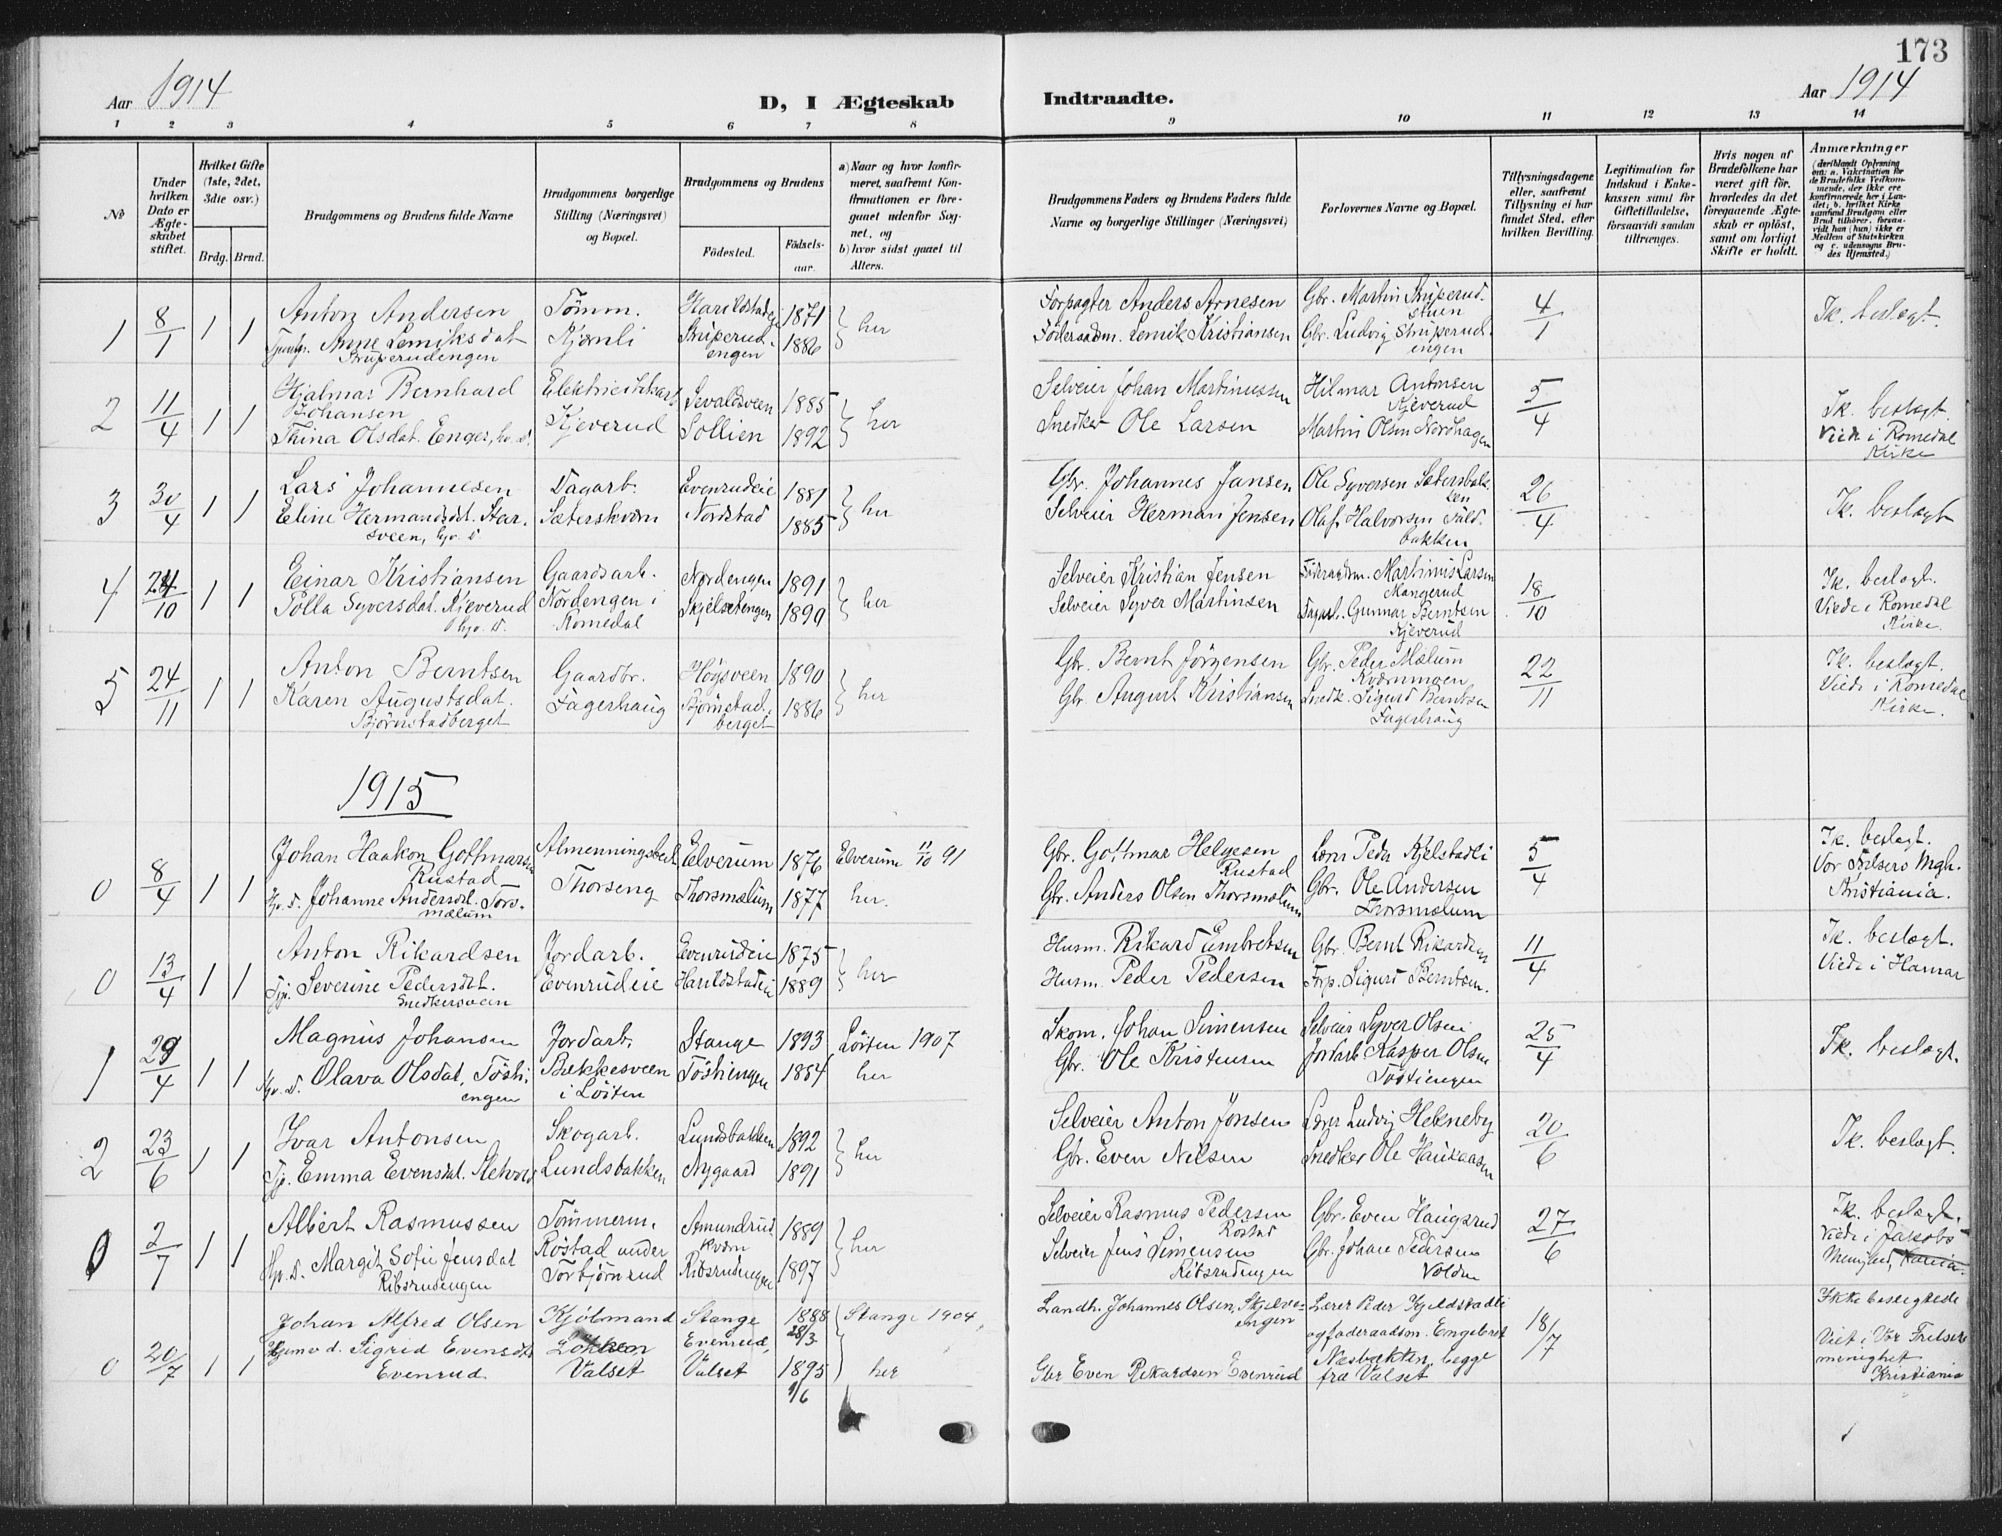 173
Aar 1914
D, I Ægteskab Indtraadte.
Aar 1914
1 2 3 4 5 6 7 8 9 10 11 12 13 14
No
Under hvilken Dato er Ægteskabet stiftet.
Hvilket Gifte (1ste, 2det, 3die osv.)
Brdg. Brud.
Brudgommens og Brudens fulde Navne
Brudgommens borgerlige Stilling (Næringsvei) og Bopæl.
Brudgommens og Brudens
Fødested.
Fødselsaar.
a) Naar og hvor konfirmeret, saafremt Konfirmationen er foregaaet udenfor Sognet, og
b) hvor sidst gaaet til Alters.
Brudgommens Faders og Brudens Faders fulde Navne og borgerlige Stillinger (Næringsvei)
Forlovernes Navne og Bopæl.
Tillysningsdagene eller, saafremt Tillysning ei har fundet Sted, efter hvilken Bevilling.
Legitimation for Indskud i Enkekassen samt for Giftetilladelse, forsaavidt saadan tiltrænges.
Hvis nogen af Brudefolkene har været gift før, hvorledes da det foregaaende Ægteskab er opløst, samt om lovligt Skifte er holdt.
Anmærkninger (deriblandt Oplysning om: a. Vakcination for de Brudefolks Vedkommende, der ikke ere konfirmerede her i Landet; b. hvilket Kirkesamfund Brudgom eller Brud tilhører, forsaavidt han (hun) ikke er Medlem af Statskirken og c. udensogns Brudes Hjemsted.)
1 8/1 1 1 Anton Andersen Tømm. Harildstadeie 1871 her Forpagter Anders Arnesen Gbr. Martin Struperudstuen 4/1 Ik. beslægt.
Anne Lemiksdat Struperudengen Kjernli Struperudengen 1886 Føderaadsm. Lemik Kristiansen Gbr. Ludvig Struperudengen
2 11/4 1 1 Hjalmar Bernhard Johansen Sevaldsveen 1885 her Selveier Johan Martinussen Hilmar Antonsen Kjeverud 5/4 Ik. beslægt.
Thina Olsdat. Enger, hv. d. Kjeverud Sollien 1892 Snedker Ole Larsen Martin Olsen Nordhagen Viede i Romedal Kirke
3 30/4 1 1 Lars Johannesen Dagarb. Evenrudeie 1881 her Gbr. Johannes Jansen Ole Syversen Sætersbakken 26/4 Ik. beslægt
Eline Hermandsdt. Starsveen, hjv. d. Sæterskværn Nordstad 1885 Selveier Herman Jensen Olaf Halvorsen
4 24/10 1 1 Einar Kristiansen Gaardsarb. Nordengen 1891 her Selveier Kristian Jensen Føderaadsm. Martinus Larsen Mangerud 18/10 Ik. beslægt.
Polla Syversdat. Kjeverud hjv. d. Nordengen i Romedal Skjelsetengen 1890 Selveier Syver Martinsen Gunnar Berntsen Kjeverud Viede i Romedal Kirke.
5 24/11 1 1 Anton Berntsen Gaardbr. Høgsveen 1890 her Gbr. Bernt Jørgensen Gbr. Peder Mælum Kværnmoen 22/11 Ik. beslægt.
Karen Augustsdat. Bjørnstadberget Fagerhaug Bjørnstadberget 1886 Gbr. August Kristiansen Snedk. Sigurd Berntsen Fagerhaug Viede i Romedal Kirke.
1915
0 8/4 1 1 Johan Haakon Gottmarsen Rustad Elverum 1876 Elverum 11/10 91 Gbr. Gottmar Helgesen Rustad Lærer Peder Kjelstadli 5/4 Ik. beslægt.
Hjv. d. Johanne Andersdt. Torsmælum Thorseng Thorsmælum 1877 her. Gbr. Anders Olsen Thorsmælum Gbr. Ole Andersen Thorsmælum Vor Frelsers Mgh. Kristiania.
0 13/4 1 1 Anton Rikardsen Jordarb. Evenrudeie 1875 her Husm. Rikard Embretsen Gbr. Bernt Rikardsen 11/4 Ik. beslægt.
Tjp. Severine Pedersdt. Snedkersveen Evenrudeie Harildstadeie 1889 Husm. Peder Pedersen Forp. Sigurd Berntsen. Viede i Hamar
1 29/4 1 1 Magnus Johansen Jordarb. Stange 1893 Løiten 1907 Skom. Johan Simensen Selveier Syver Olsen 25/4 Ik. beslægt.
Hjv. d. Olava Olsdat, Tøstiengen Bækkesveen i Løiten Tøstiengen 1884 her Gbr. Ole Kristensen Jordarb Kasper Olsen Tøstiengen
2 23/6 1 1 Ivar Antonsen Skogarb. Lundsbakken 1892 her Selveier Anton Jonsen Lærer Ludvig Helsneby 20/6 Ik. beslægt.
Tjp. Emma Evensdat. Lundsbakken Nygaard 1891 Gbr. Even Nilsen Snedker Ole Haukaasen
0 2/7 1 1 Albert Rasmussen Tømmerm. Amundrud Kværn 1889 her Selveier Rasmus Pedersen Røstad Gbr. Even Haugsrud 27/6 Ik. beslægt.
Hjv. d. Margit Sofie Jensdat Ribsrudengen Røstad under Torbjørnrud Ribsrudengen 1897 Selveier Jens Simensen Ribsrudengen Gbr. Johan Pedersen Volden Viede i Jakobs Menighed, Kania.
0 20/7 1 1 Johan Alfred Olsen Kjølmand Stange 1888 28/3 Stange 1904, Landh. Johannes Olsen, Lærer Peder Kjeldstadli 18/7 Ikke beslegtede
Hjemv d. Sigrid Evensdt Evenrud. Løkken Valset Evenrud, Valset 1895 9/6 her Gbr Even Rikardsen Evenrud og føderaadsm. Engebret Næsbakken, begge fra Valset Viet i Vor Frelsers menighet Kristiania